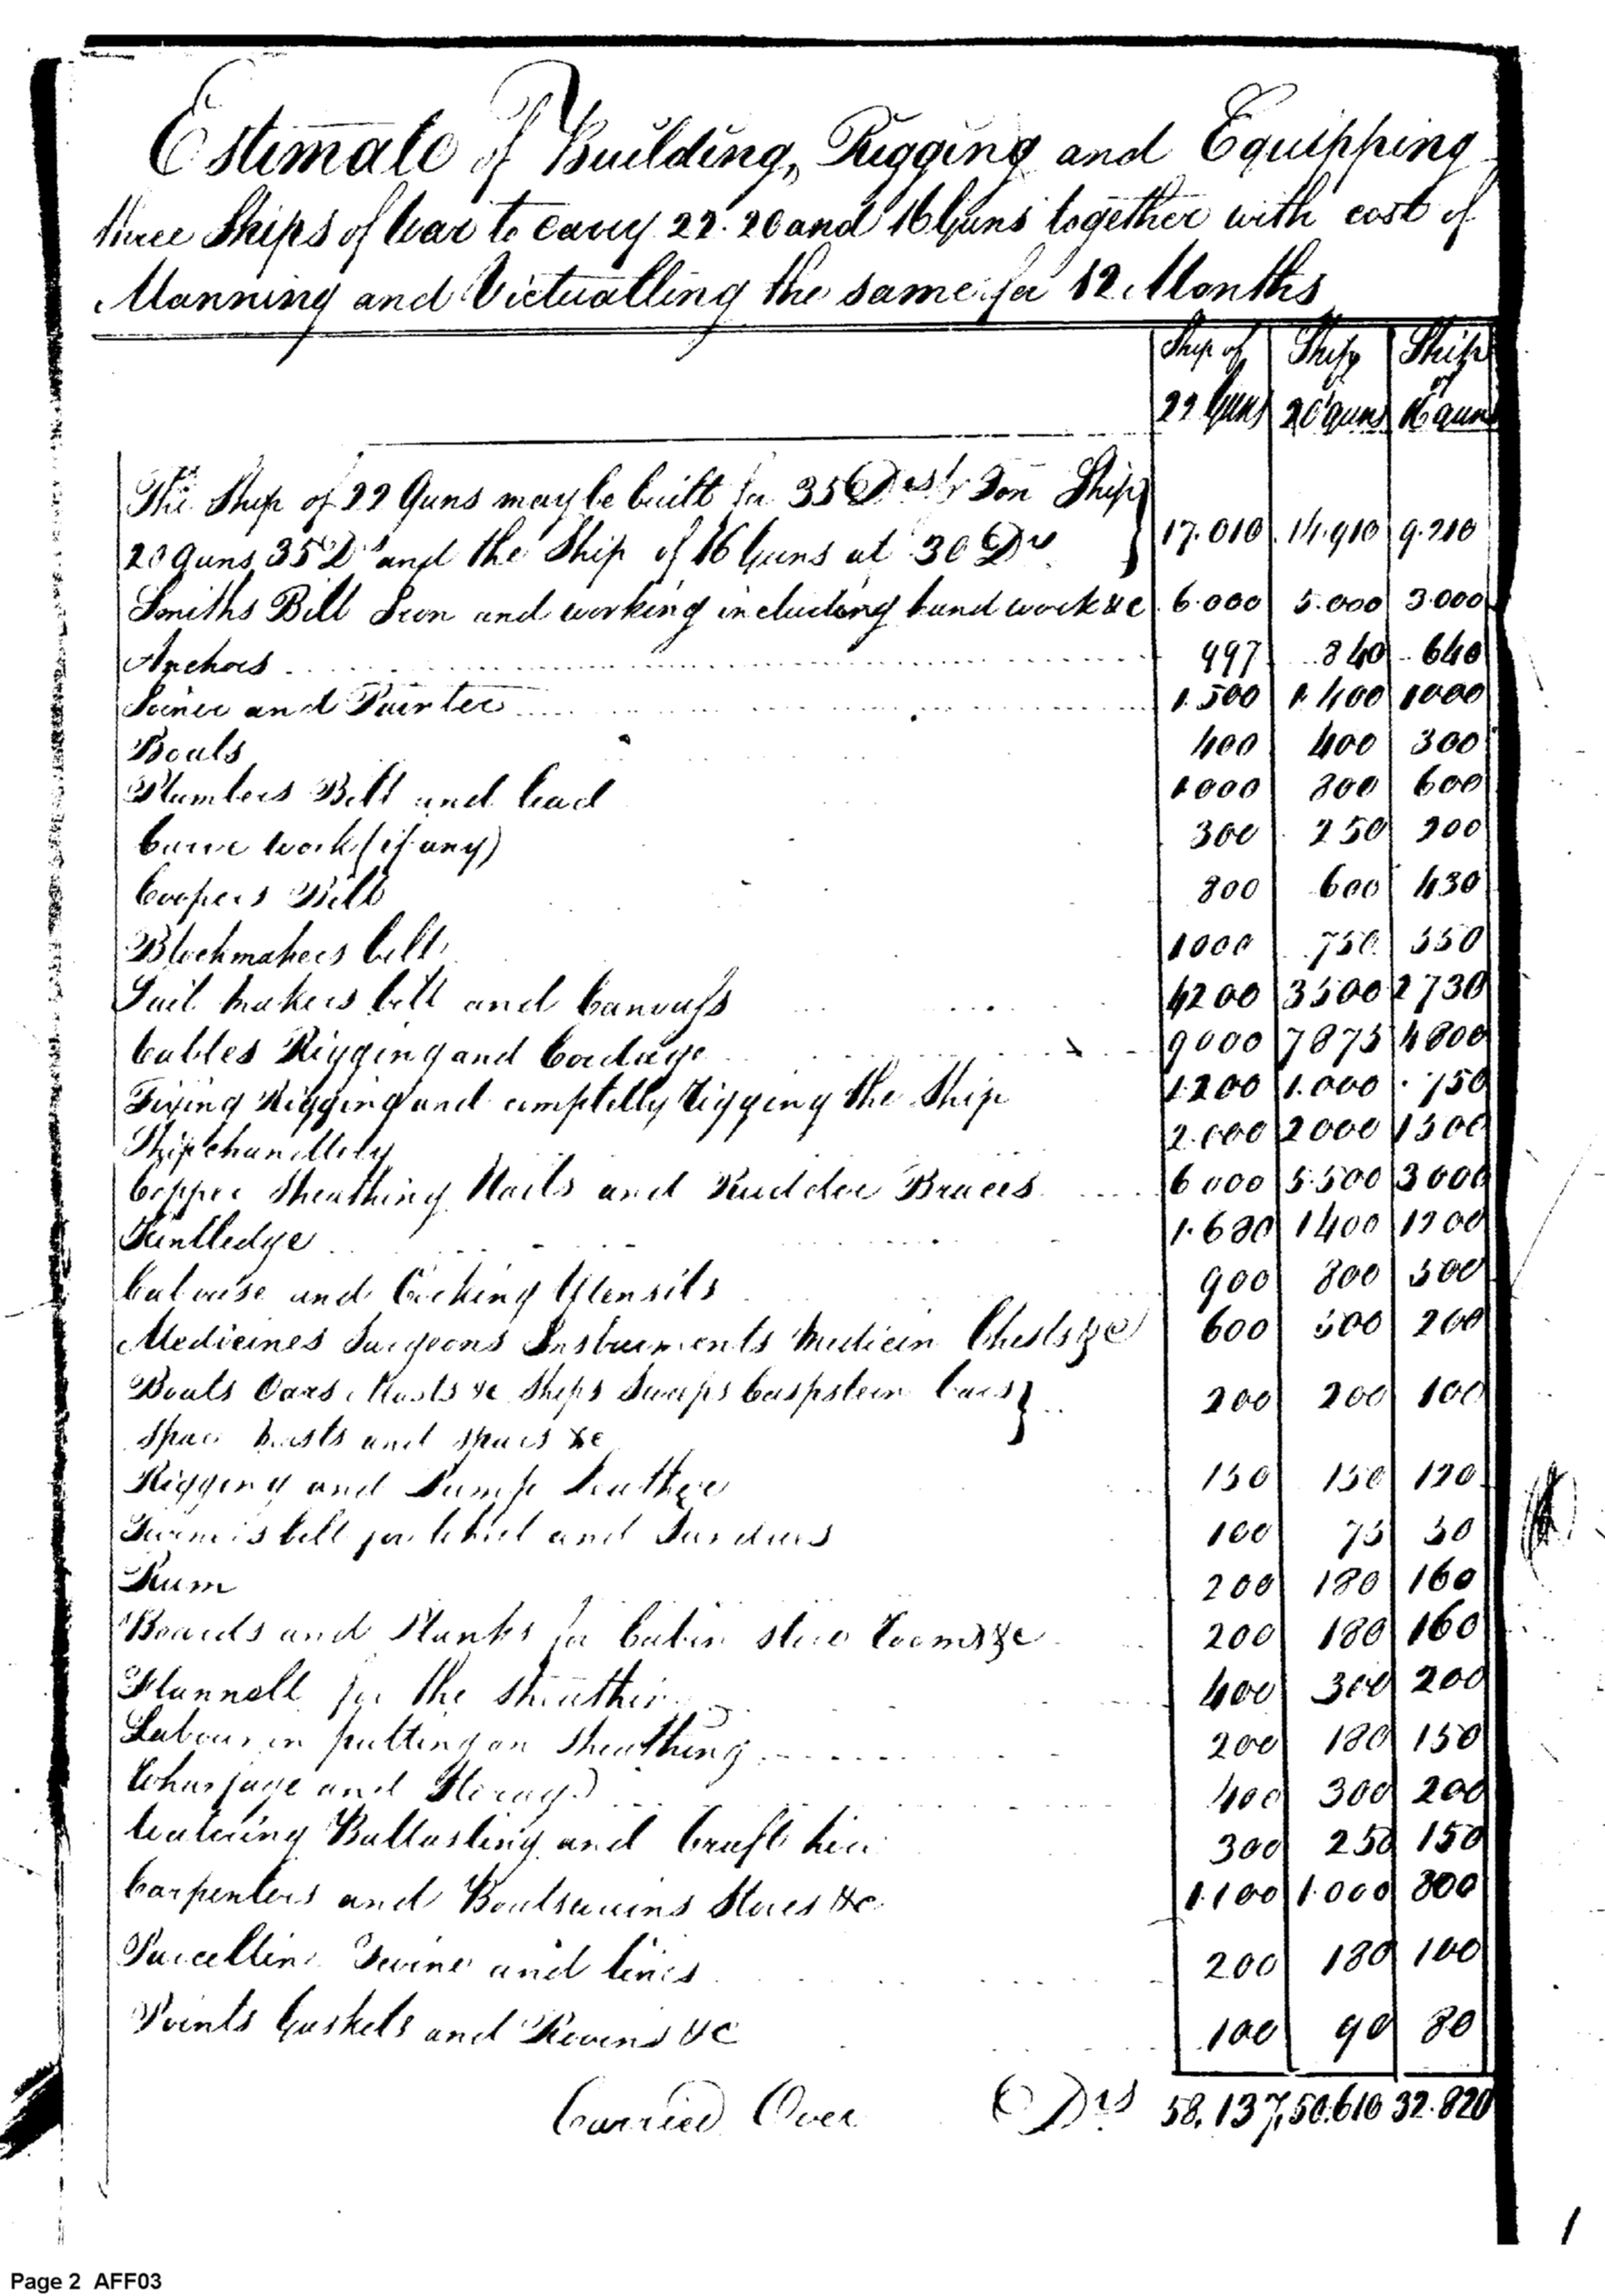 Estimate of Building, Rigging and Equipping
three Ships of War to carry 22. 20 and 16 Guns together with cost of
Manning and Victualling the same for 12 Months
Ship of Ship Ship of
22 Guns 20 guns 16 guns
The Ship of 22 Guns may be built for 35 Drs pr Ton Ship
20 guns 35 Ds and the Ship of 16 Guns at 30 Drs 17.010 14.910 9.210
Smiths Bill Iron and working including hand work &c 6.000 5.000 3.000
Anchors 997 840 640
Joiner and Painter 1.500 1.400 1000
Boats 400 400 300
Plumbers Bill and lead 1000 800 600
Carve work (if any) 300 250 200
Coopers Bill 800 600 430
Blockmakers bill 1000 750 550
Sail makers bill and Canvass 4200 3500 2730
Cables Rigging and Cordage 9000 7875 4800
Fixing Rigging and completely rigging the Ship 1.200 1.000 750
Ship chandlery 2.000 2000 1500
Copper Sheathing Nails and Rudder Braces 6000 5.500 3000
Kentledge 1.680 1400 1200
Cabouse and Cooking Utensils 900 800 500
Medicines Surgeons Instruments Medicin Chests &c 600 500 200
Boats Oars Masts &c Ships Sweeps Caspstern bars 200 200 100
spare masts and spars &c
Rigging and Pump Leather 150 150 120
Turners bill for wheel and Sundries 100 75 50
Rum 200 180 160
Boards and Planks for Cabin store rooms &c 200 180 160
Flannell for the sheathing 400 300 200
Labour in putting on sheathing 200 180 150
Wharfage and Storage 400 300 200
Watering Ballasting and Craft hire 300 250 150
Carpenters and Boatswains Stores &c 1.100 1.000 800
Parcelling Twine and lines 200 180 100
Points Gaskets and Rovens &c 100 90 80
Carried Over Drs 58.137 50.610 32.820
1
Page 2 AFF03